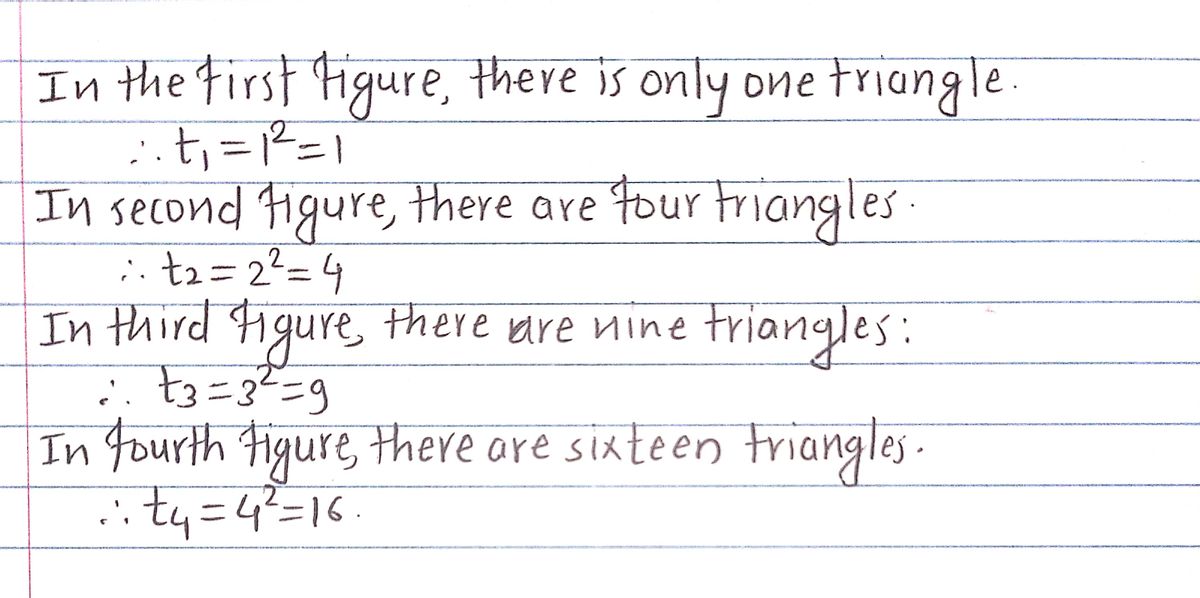 In the first figure, there is only one triangle.
∴ t₁ = 1² = 1
In second figure, there are four triangles.
∴ t₂ = 2² = 4
In third figure, there are nine triangles:
∴ t₃ = 3² = 9
In fourth figure, there are sixteen triangles.
∴ t₄ = 4² = 16.